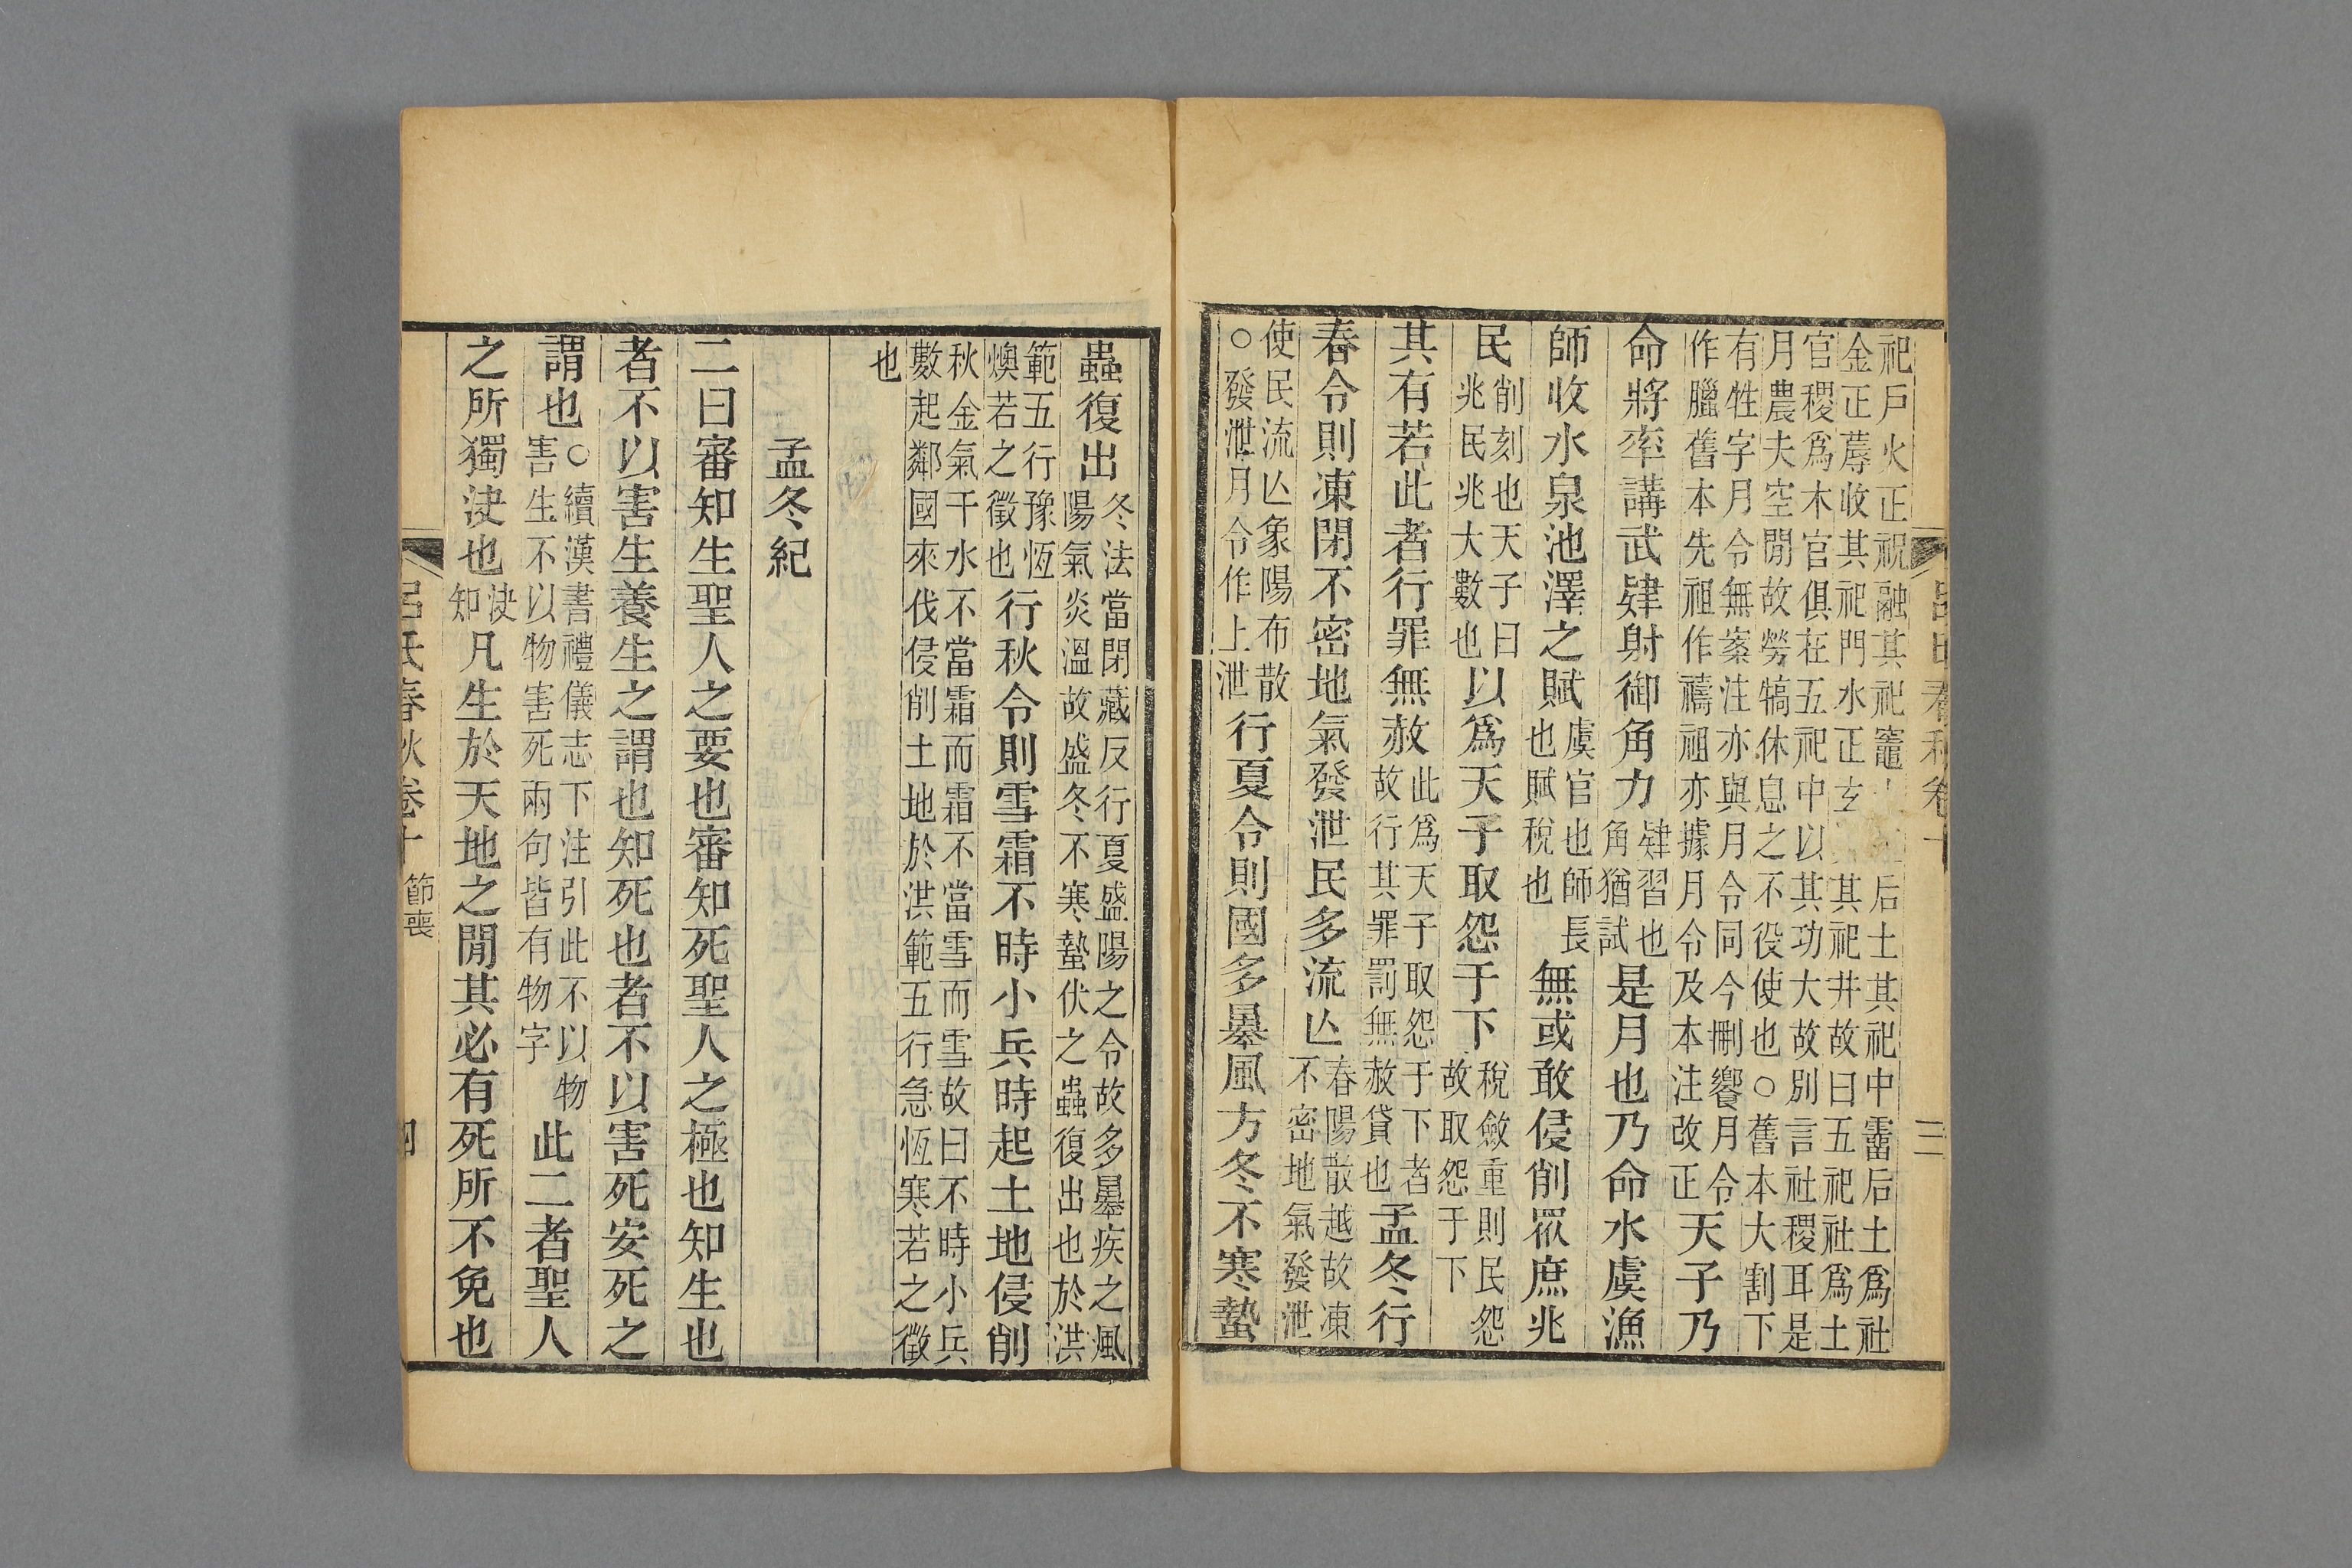 呂氏春秋卷十　三
祀戶火正祝融其祀竈后土其祀中霤后土爲社
金正蓐收其祀門水正玄其祀井故曰五祀社爲土
官稷爲木官俱在五祀中以其功大故別言社稷耳是
月農夫空閒故勞犒休息之不役使也○舊本大割下
有牲字月令無案注亦與月令同今刪饗月令作臘舊本先祖作禱祖亦據月令及本注改正天子乃
命將率講武肄射御角力肄習也角猶試是月也乃命水虞漁
師收水泉池澤之賦虞官也師長也賦稅也無或敢侵削眾庶兆
民削刻也天子曰兆民兆大數也以爲天子取怨于下稅斂重則民怨故取怨于下
其有若此者行罪無赦此爲天子取怨于下者故行其罪罰無赦貸也孟冬行
春令則凍閉不密地氣發泄民多流亾春陽散越故凍不密地氣發泄
使民流亾象陽布散○發泄月令作上泄行夏令則國多暴風方冬不寒蟄
蟲復出冬法當閉藏反行夏盛陽之令故多暴疾之風陽氣炎溫故盛冬不寒蟄伏之蟲復出也於洪
範五行豫恆燠若之徵也行秋令則雪霜不時小兵時起土地侵削
秋金氣干水不當霜而霜不當雪而雪故曰不時小兵
數起鄰國來伐侵削土地於洪範五行急恆寒若之徵
也
孟冬紀
二曰審知生聖人之要也審知死聖人之極也知生也
者不以害生養生之謂也知死也者不以害死安死之
謂也○續漢書禮儀志下注引此不以物害生不以物害死兩句皆有物字此二者聖人
之所獨決也決知凡生於天地之閒其必有死所不免也
呂氏春秋卷十　節喪　四